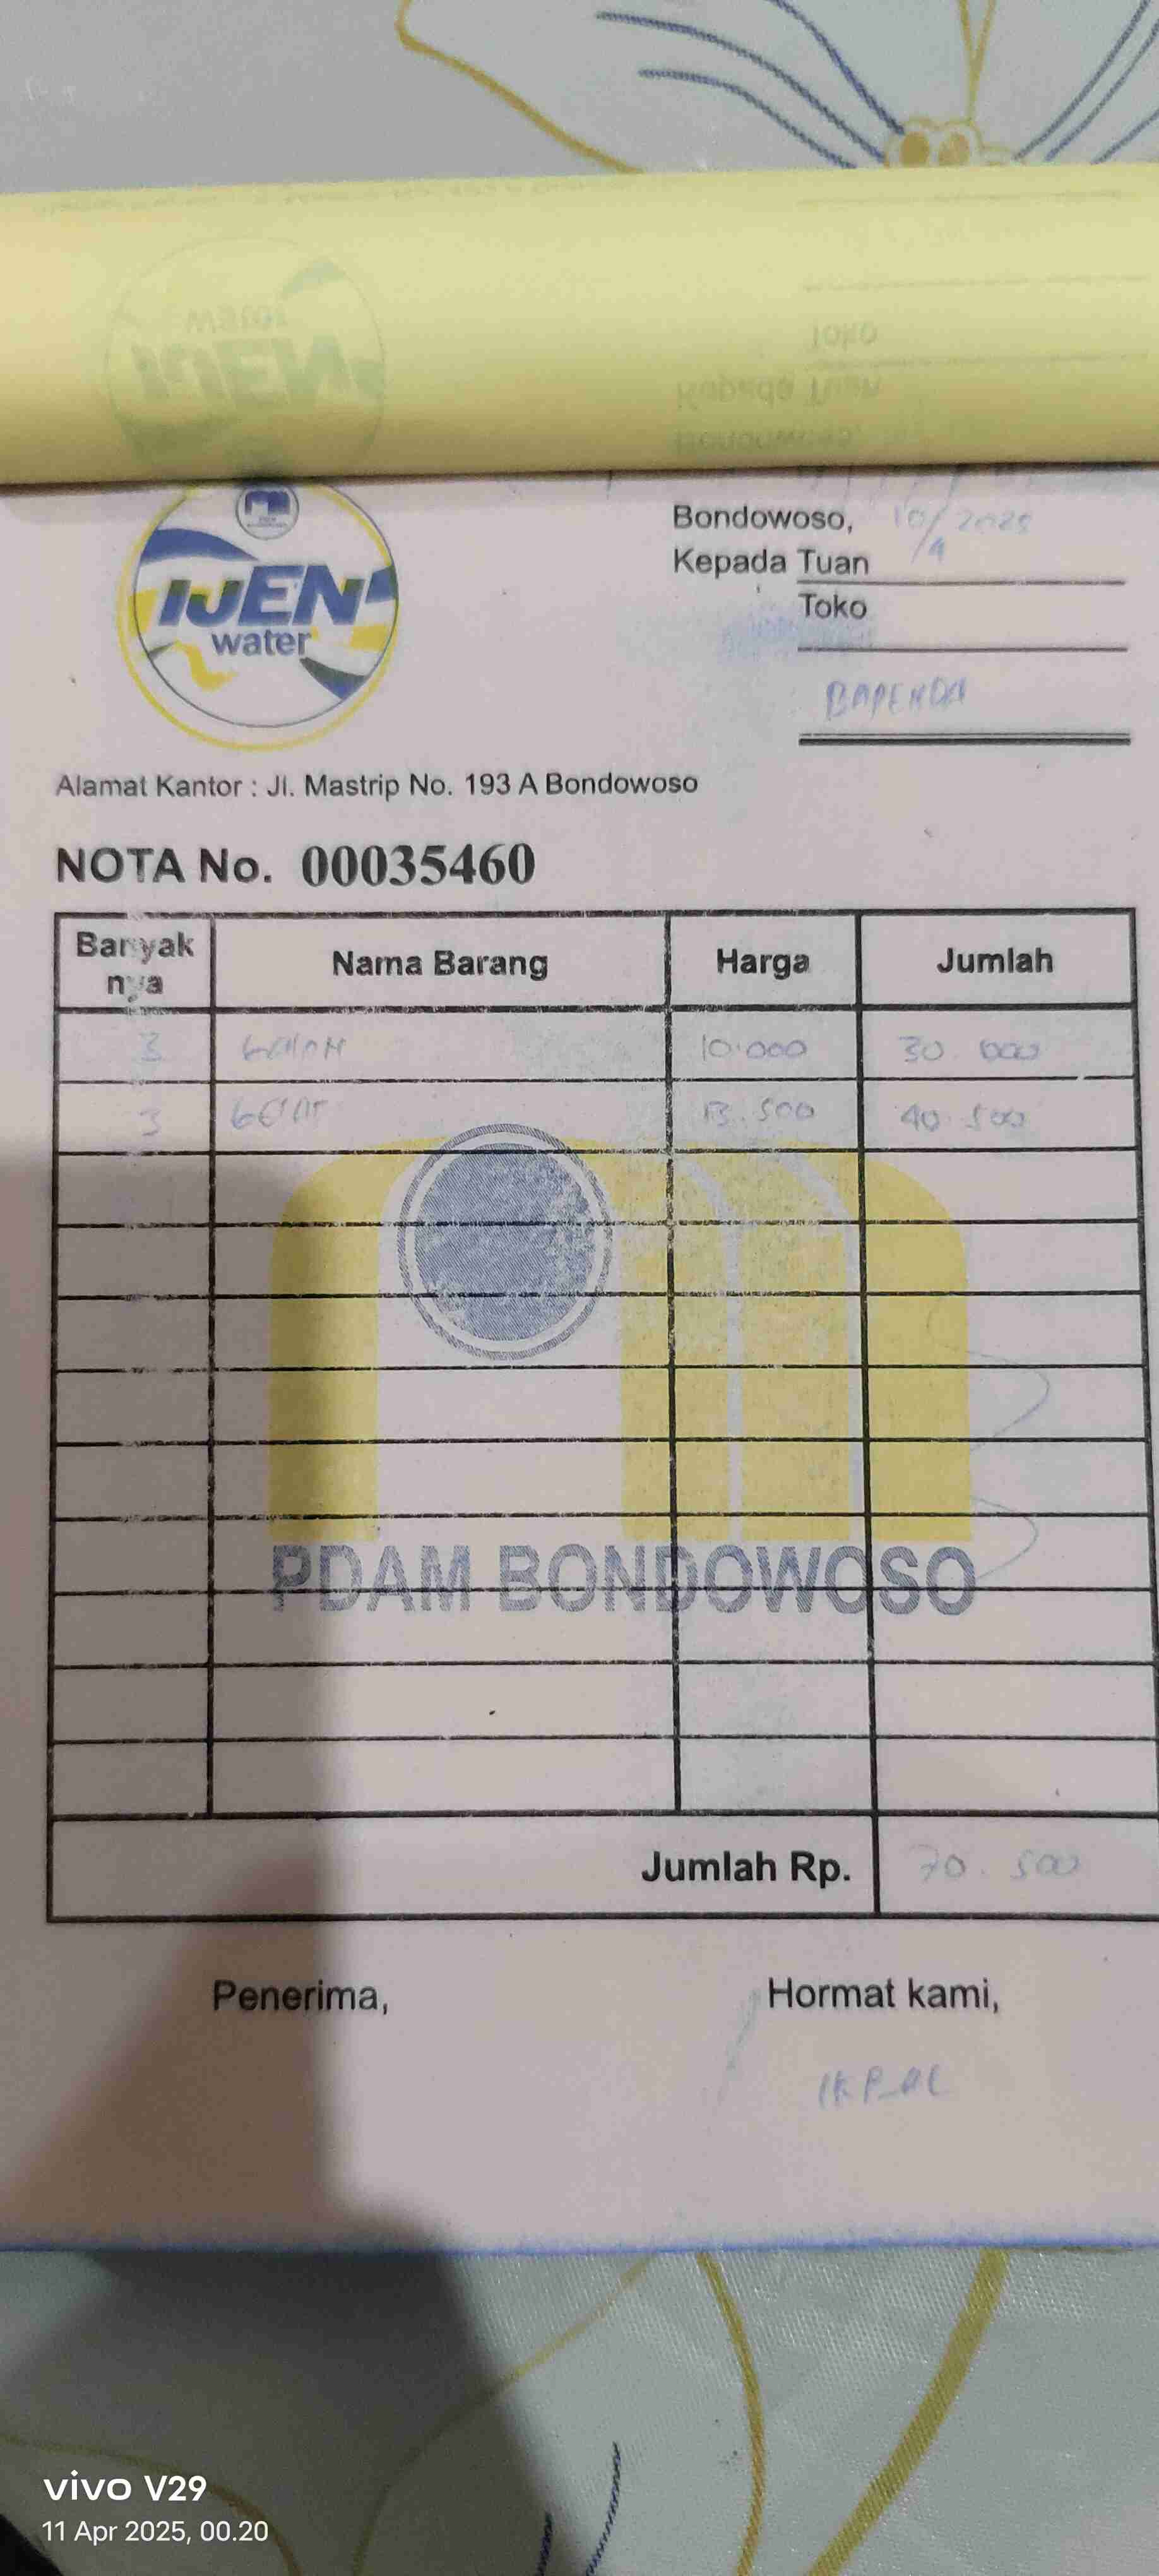 IJEN
water
Bondowoso, 10/4 2025
Kepada Tuan
Toko
BAPENDA
Alamat Kantor : Jl. Mastrip No. 193 A Bondowoso
NOTA No. 00035460
Banyak nya Nama Barang Harga Jumlah
3 GALON 10.000 30.000
3 GELAS 13.500 40.500
PDAM BONDOWOSO
Jumlah Rp. 70.500
Penerima, Hormat kami,
vivo V29
11 Apr 2025, 00.20